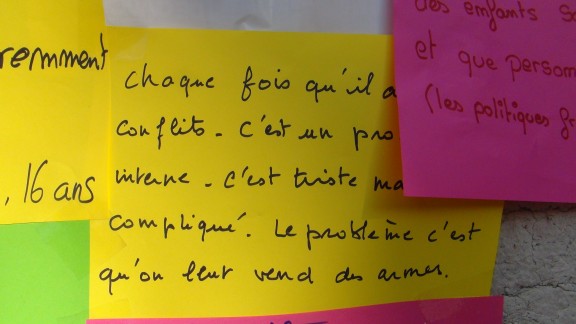 remment
, 16 ans
chaque fois qu'il a
conflits. C'est un pro
interne. C'est triste ma
compliqué. Le problème c'est
qu'on leur vend des armes.
des enfants s
et que person
(les politiques fr